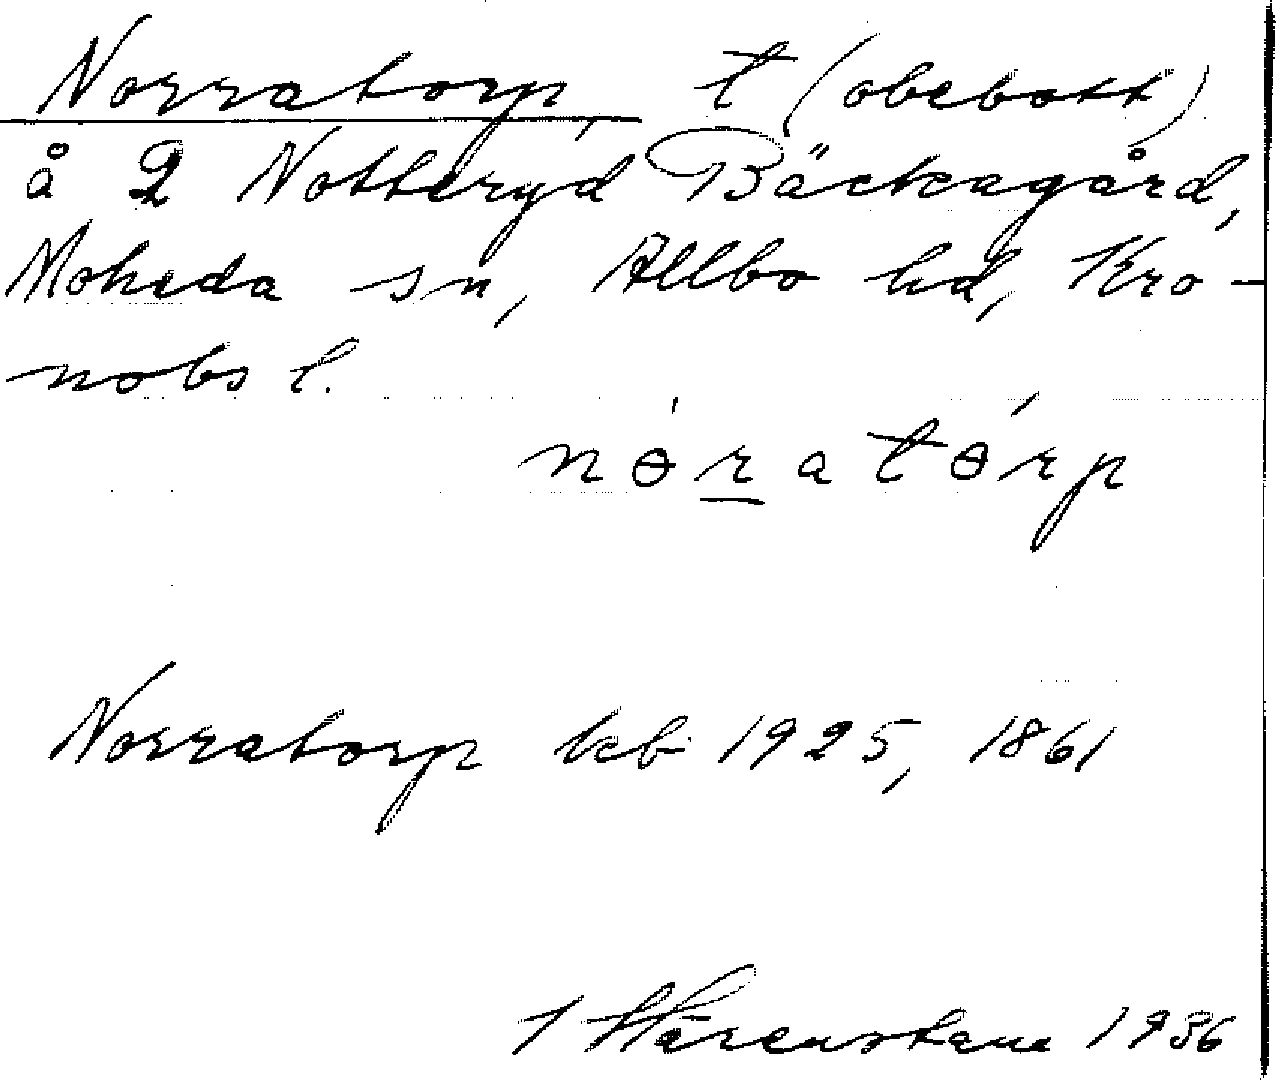 Norratorp, t (obebott)
å 2 Notteryd Bäckagård,
Moheda sn, Allbo hd, Kro-
nobs l.
nɵ́ratɵ̀rp
Norratorp kb 1925, 1861
1936